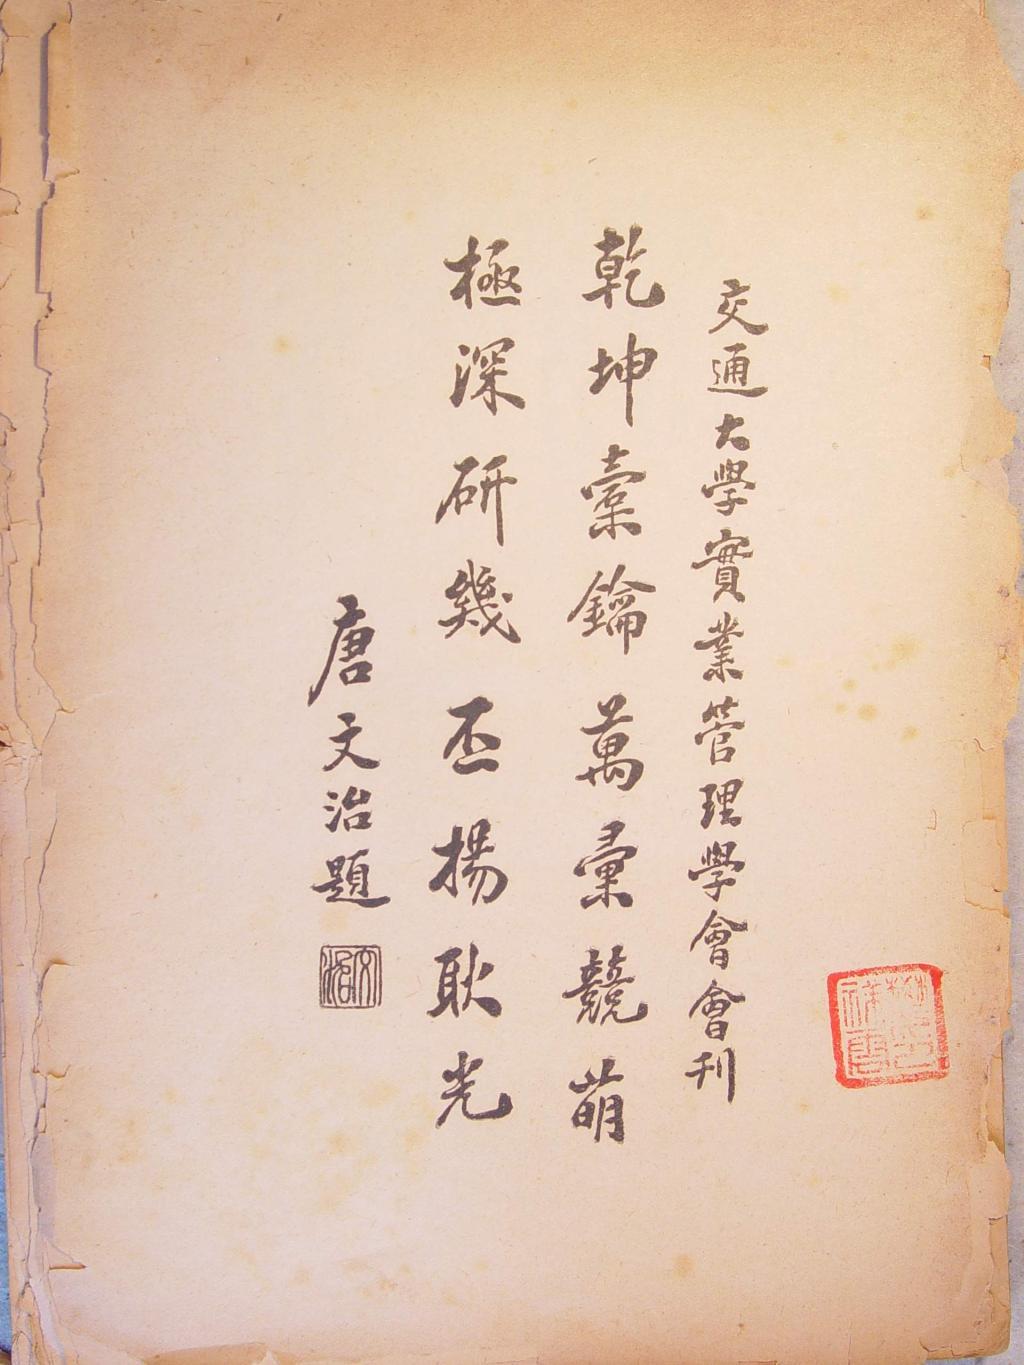 交通大學實業管理學會會刊
乾坤橐鑰萬彙競萌
極深研幾丕揚耿光
唐文治題
文治